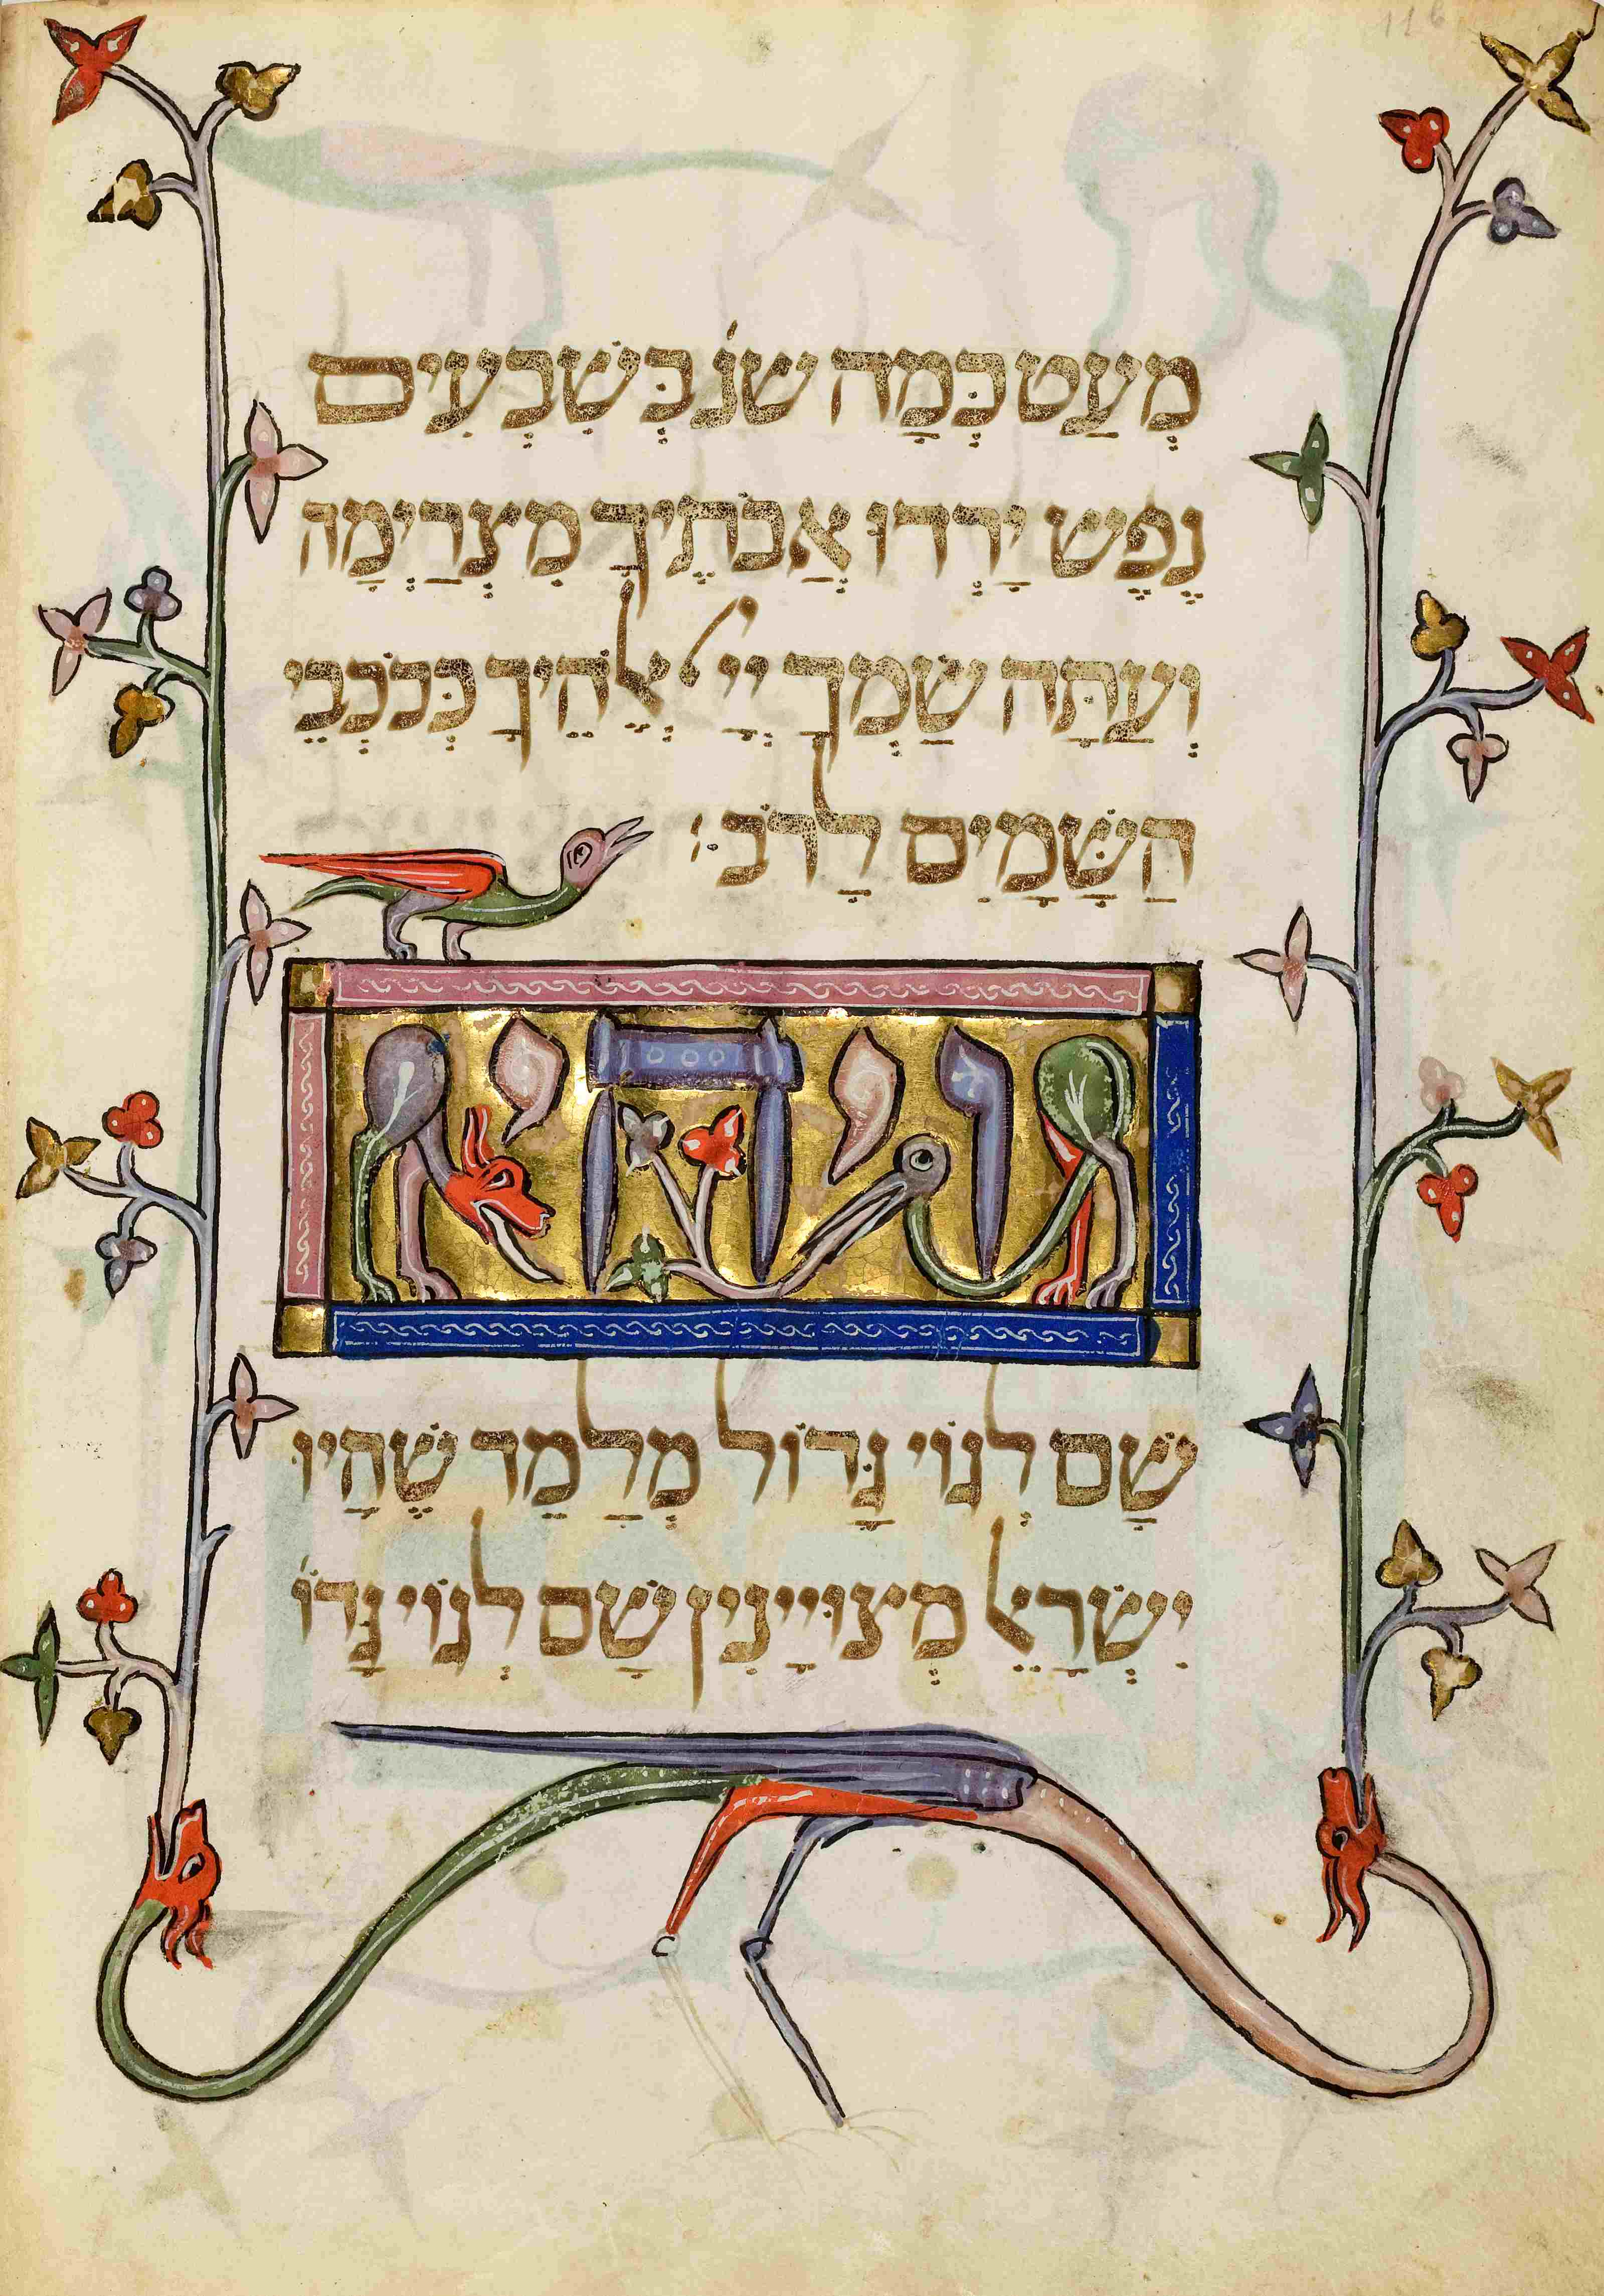 11b
מְעַט כְּמָה שנ̇ בְּשִׁבְעִים
נֶפֶשׁ יָרְדוּ אֲבֹתֶיךָ מִצְרַיְמָה
וְעַתָּה שָׂמְךָ יְיָ אֱלֹהֶיךָ כְּכֹכְבֵי
הַשָּׁמַיִם לָרֹב׃
ויהי
שָׁם לְגוֹי גָּדוֹל מְלַמֵּד שֶׁהָיוּ
יִשְׂרָאֵל מְצוּיָּינִין שָׁם לְגוֹי גָּדוֹ